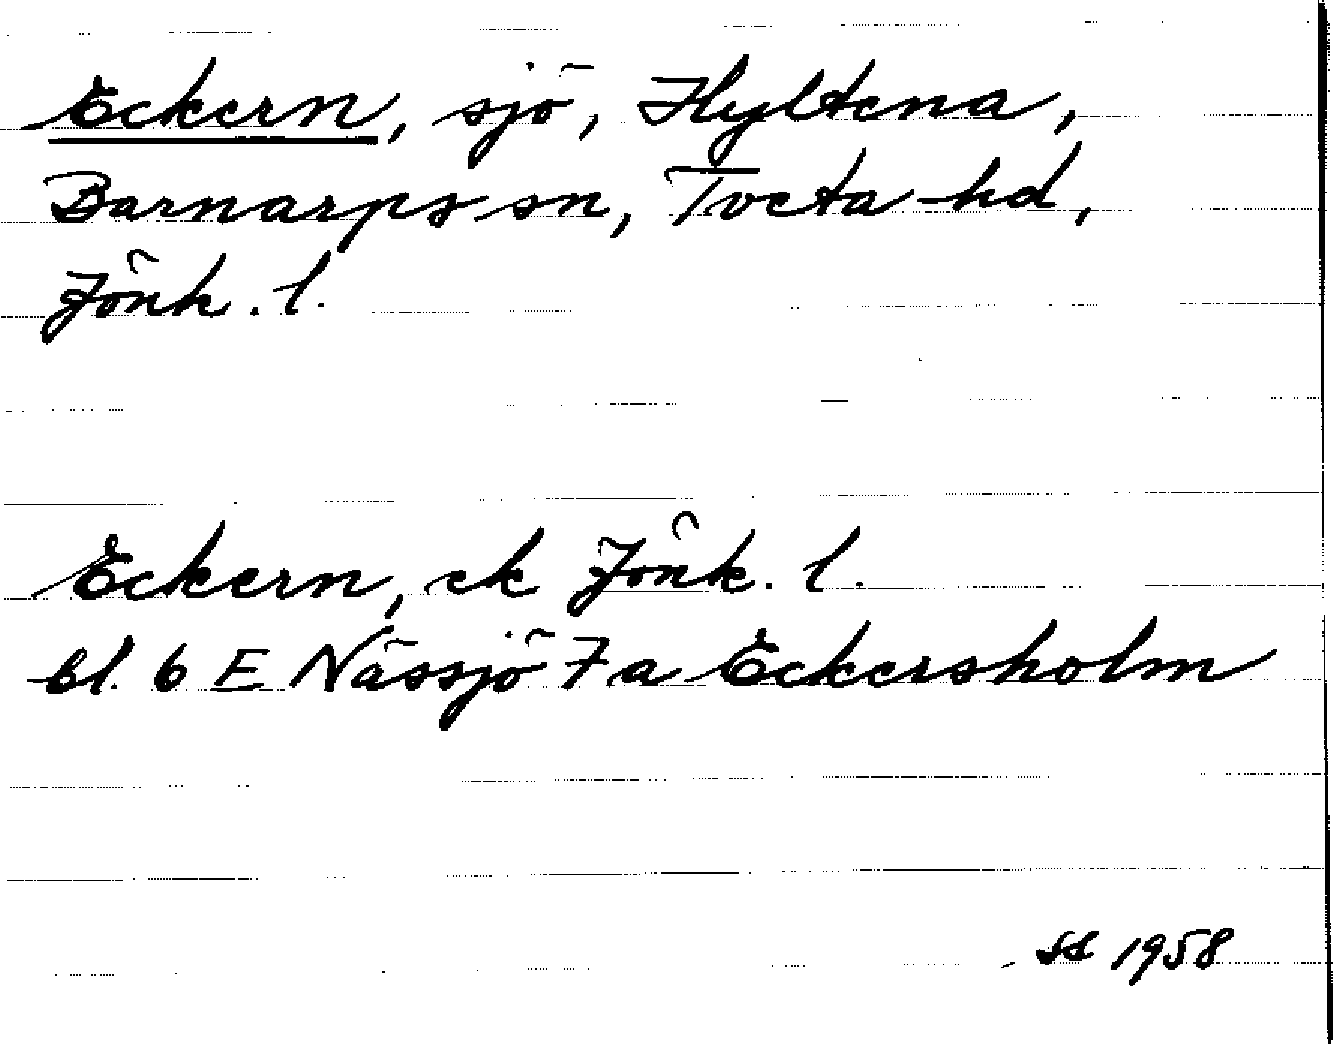 Eckern, sjö, Hyltena,
Barnarps sn, Tveta hd,
Jönk. l.
Eckern, ek Jönk. l.
bl. 6 E Nässjö 7 a Eckersholm
SS 1958